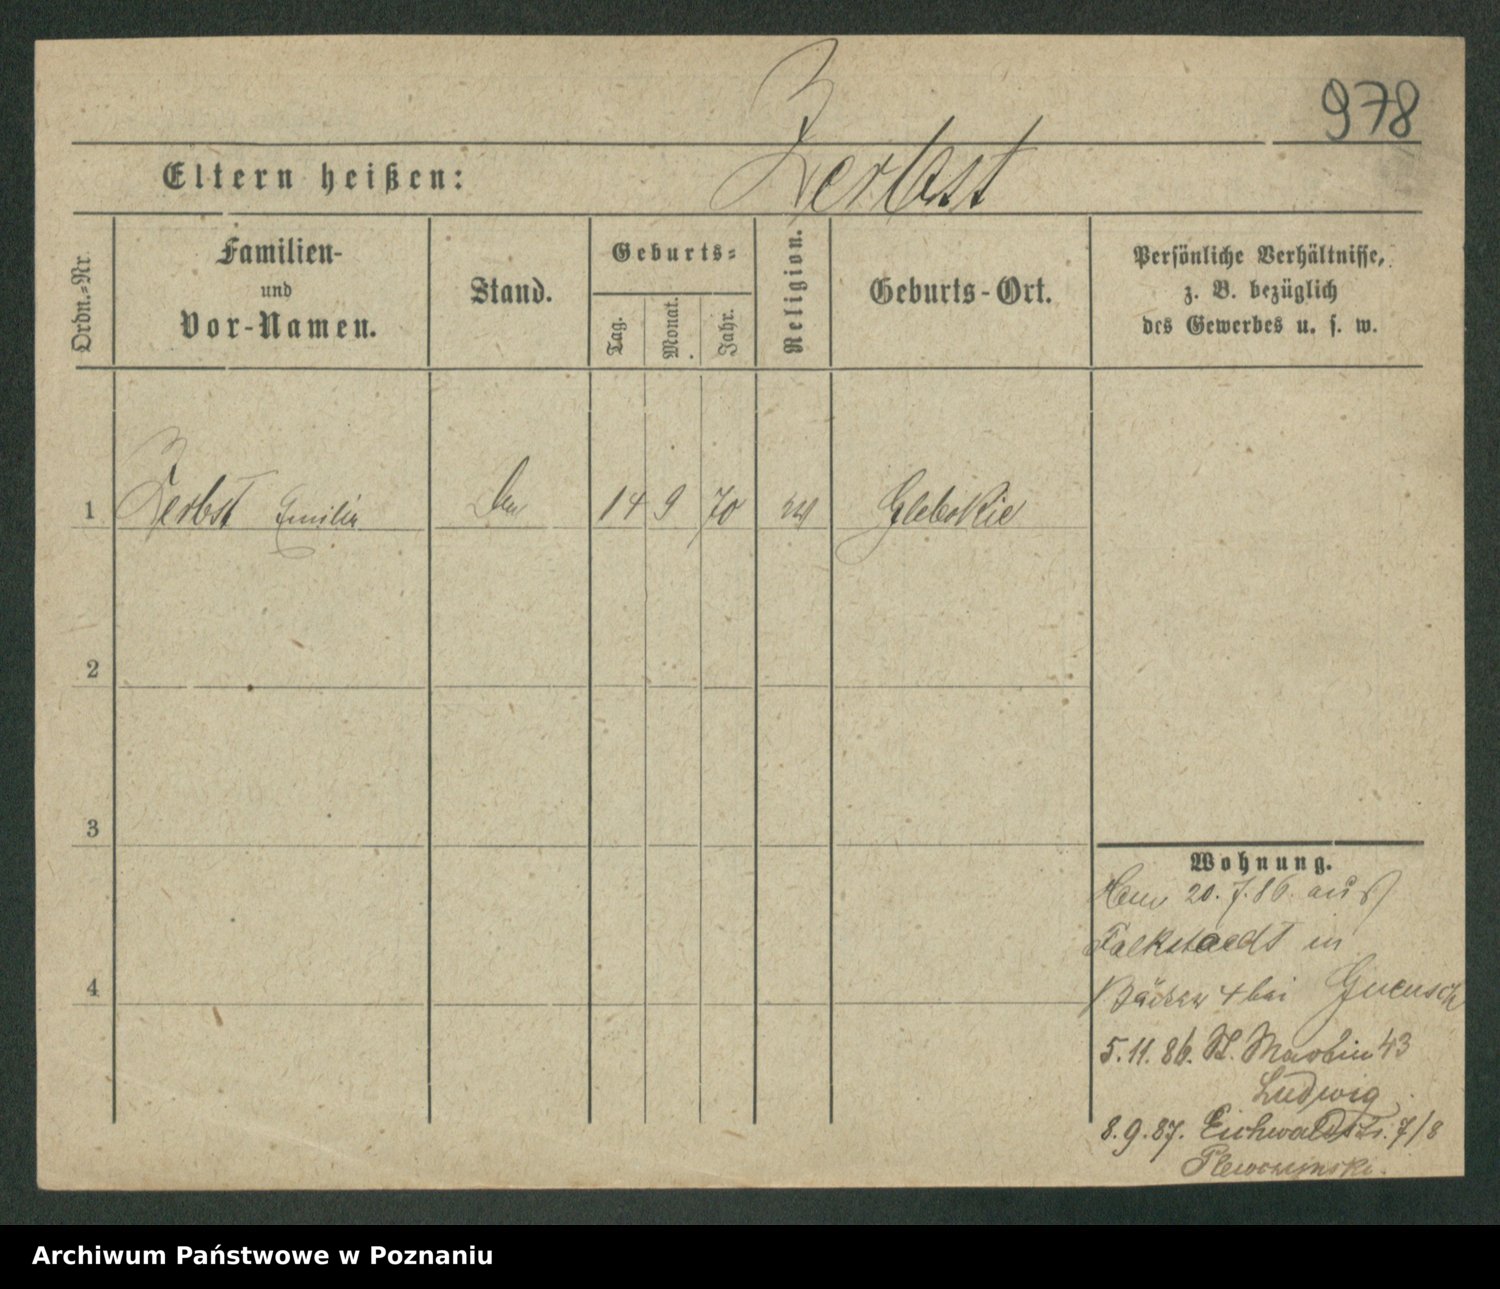 978
Eltern heißen: Zerbst
Ordn.-Nr.
Familien-
und
Vor-Namen.
Stand.
Geburts-
Tag.
Monat.
Jahr.
Religion.
Geburts-Ort.
Persönliche Verhältnisse,
z. B. bezüglich
des Gewerbes u. s. w.
1 Zerbst Emilie 14 9 70 Glebokie
2
3
4
Wohnung.
20.7.86. aus
Falkstaedt in
Bäcker 4 bei
5.11.86. St. Martin 43
Ludwig
8.9.87. Eichwaldstr. 7/8
Archiwum Państwowe w Poznaniu